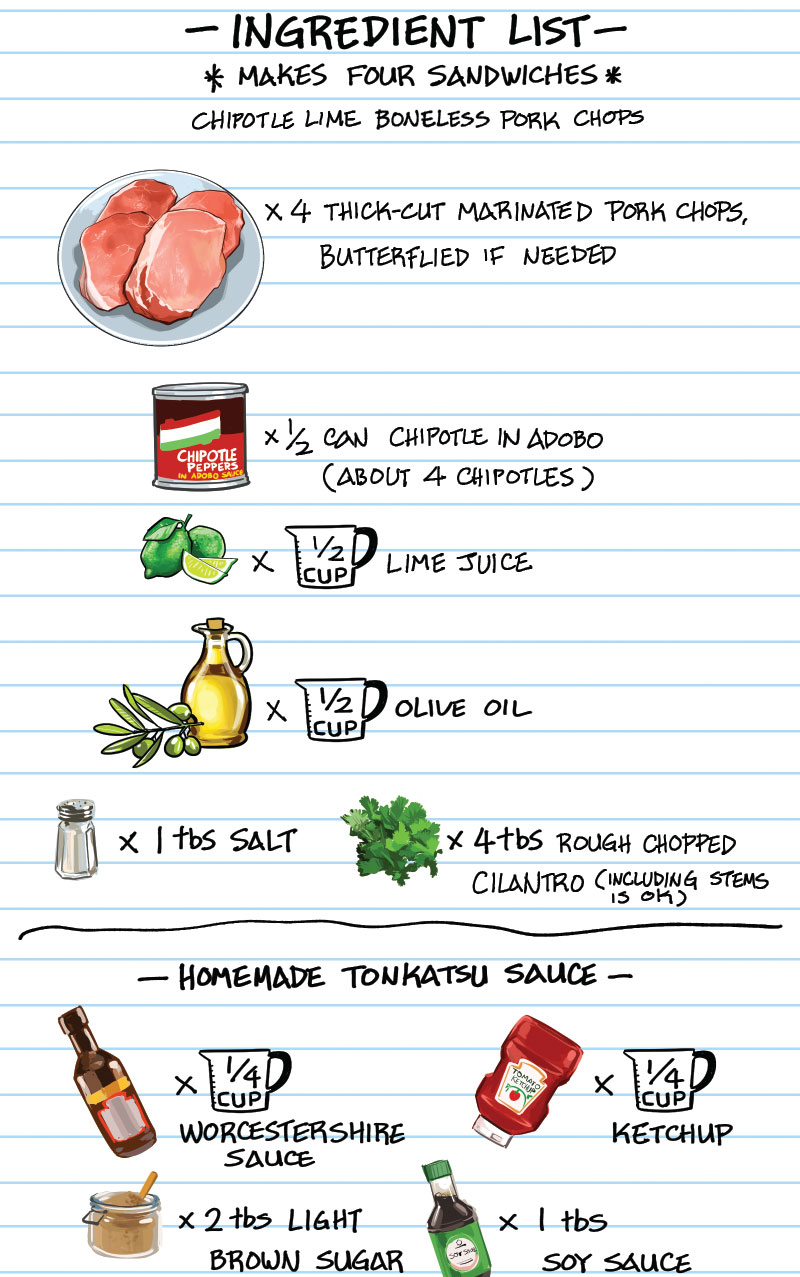 - INGREDIENT LIST -
* MAKES FOUR SANDWICHES *
CHIPOTLE LIME BONELESS PORK CHOPS
x 4 THICK-CUT MARINATED PORK CHOPS,
BUTTERFLIED IF NEEDED
CHIPOTLE
PEPPERS
IN ADOBO SAUCE
x 1/2 CAN CHIPOTLE IN ADOBO
(ABOUT 4 CHIPOTLES)
x 1/2 CUP LIME JUICE
x 1/2 CUP OLIVE OIL
x 1 tbs SALT
x 4 tbs ROUGH CHOPPED
CILANTRO (INCLUDING STEMS
IS OK)
- HOMEMADE TONKATSU SAUCE -
x 1/4 CUP
WORCESTERSHIRE
SAUCE
TOMATO
KETCHUP
x 1/4 CUP
KETCHUP
x 2 tbs LIGHT
BROWN SUGAR
SOY SAUCE
x 1 tbs
SOY SAUCE